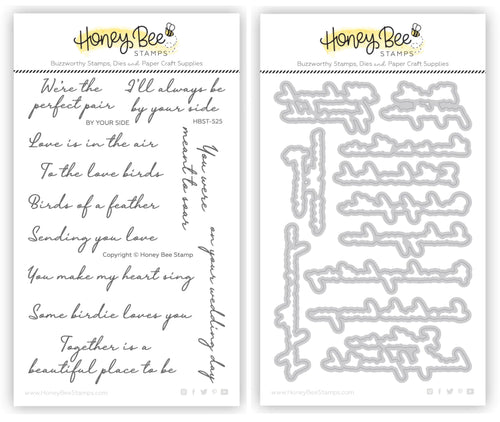 Honey Bee
STAMPS
Buzzworthy Stamps, Dies and Paper Craft Supplies
We're the
perfect pair
I'll always be
by your side
BY YOUR SIDE
HBST-525
Love is in the air
To the love birds
Birds of a feather
Sending you love
Copyright © Honey Bee Stamp
You make my heart sing
Some birdie loves you
Together is a
beautiful place to be
You were
meant to soar
on your wedding day
www.HoneyBeeStamps.com
Honey Bee
STAMPS
Buzzworthy Stamps, Dies and Paper Craft Supplies
www.HoneyBeeStamps.com